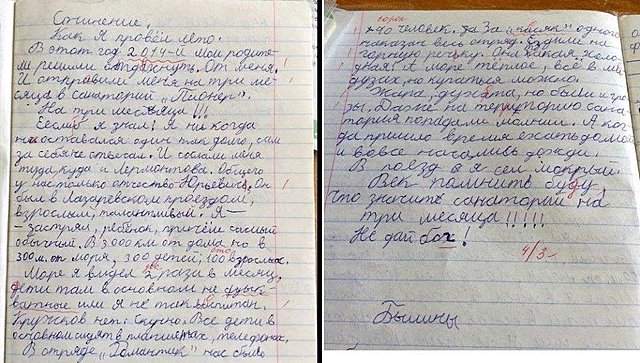 Сочинение.
Как Я провёл лето.
В этот год 2014-й мои родите-
ли решили отдохнуть. От меня.
И отправили меня на три ме-
сяца в санаторий „Пионер".
На три месяца!!!
Если б я знал! Я ни когда
не оставался один так долго, сам
за себя не отвечал. И сослали меня
туда куда и Лермонтова. Общего
у нас только отчество Юрьевичь. Он
был в Лазаревском проездом,
взрослый, талантливый. Я –
– застрял, ребёнок, причём самый
обычный. В 3000 км от дома, но в
300 м. от моря, 300 детей, 100 взрослых.
сто
Море я видел 2 раза в месяц,
два
дети там в основном не
или я не так воспитан.
Кружков нет. Скучно. Все дети в
основном сидят в планшетах, телефонах.
В отряде „Романтик" нас было
сорок
40 человек. За „косяк" одного
наказан весь отряд. Ездили на
горную речку. Она
А море тёплое, всё в ме-
дузах, но купаться можно.
Жара, духота, но были и гро-
зы. Даже на территорию сана-
тория попадали молнии. А ког-
да пришло время ехать домой
и вовсе начались дожди.
В поезд я сел мокрый.
Век помнить буду,
что значит санаторий на
три месяца!!!!!
Не дай бох!
4/3-
Былины